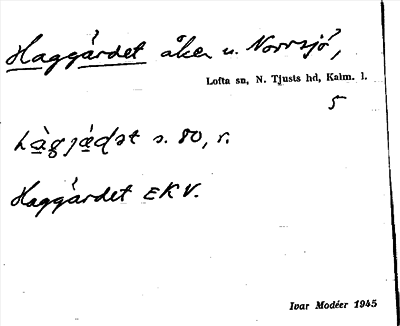 Haggårdet åker u. Norrsjö,
Lofta sn, N. Tjusts hd, Kalm. l.
5
s. 80, r.
Haggårdet EKV.
Ivar Modéer 1945